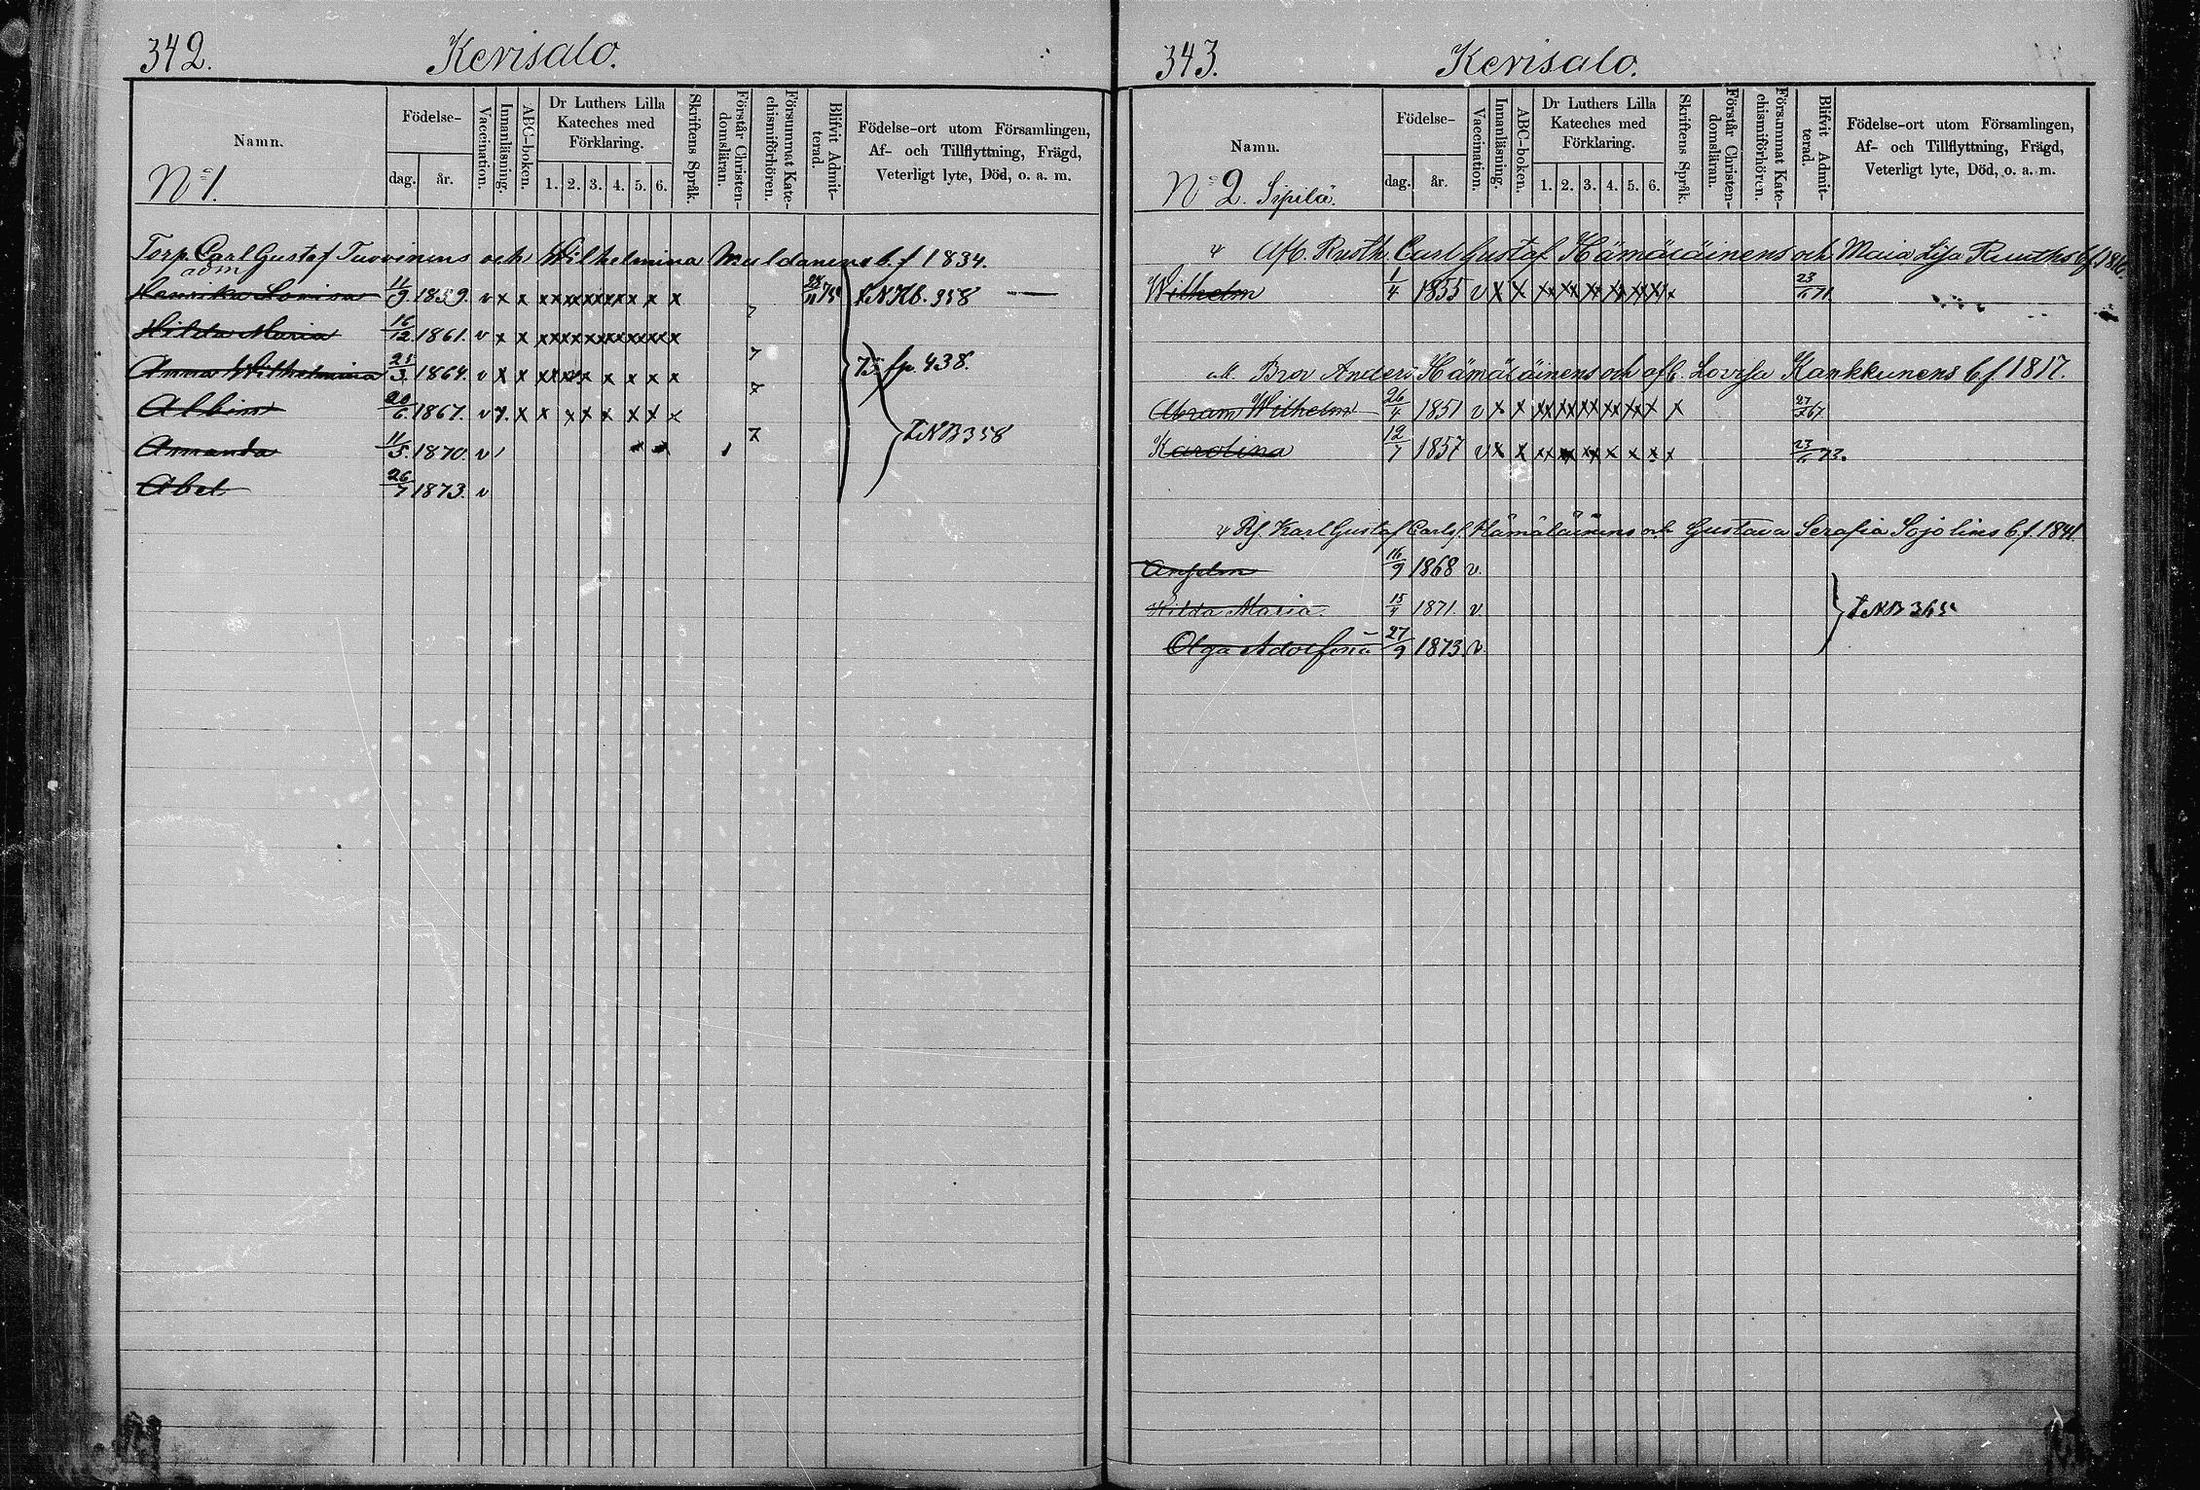 342.
Kerisalo.
Namn.
Födelse-
dag.
år.
Vaccination.
Innanläsning.
ABC-boken.
Dr Luthers Lilla
Kateches med
Förklaring.
1. 2. 3. 4. 5. 6.
Skriftens Språk.
Förstår Christen-
domsläran.
Försummat Kate-
chismiförhören.
Blifvit Admit-
terad.
Födelse-ort utom Församlingen,
Af- och Tillflyttning, Frägd,
Veterligt lyte, Död, o. a. m.
No 1.
Torp. Carl Gustaf Tuovinens och Wilhelmina Muldanens b. f 1834.
adm
Henrika Lovisa 11/9 1859. v x x x x x x x x x
Hilda Maria 16/12 1861. v x x x x x x x x x
Anna Wilhelmina 1864. v x x x x x x x x x
Albin 20/6 1867. v x x x x x x x x x
Amanda 11/5 1870. v
Abel 26/7 1873. v
358
fp. 438.
358
343.
Kerisalo.
Namn.
Födelse-
dag.
år.
Vaccination.
Innanläsning.
ABC-boken.
Dr Luthers Lilla
Kateches med
Förklaring.
1. 2. 3. 4. 5. 6.
Skriftens Språk.
Förstår Christen-
domsläran.
Försummat Kate-
chismiförhören.
Blifvit Admit-
terad.
Födelse-ort utom Församlingen,
Af- och Tillflyttning, Frägd,
Veterligt lyte, Död, o. a. m.
No 2. Sipilä.
Afl. Rusth. Carl Gustaf Hämäläinens och Maia Lisa Ruuths b. f.
Wilhelm 1/4 1855 v x x x x x x x x x 23/6 71.
Bror Anders Hämäläinens och afl. Lovisa Kankkunens b f 1817.
Abram Wilhelm 26/4 1851 v x x x x x x x x x
Karolina 12/7 1857 v x x x x x x x x x 23/6 73.
Karl Gustaf Carls. Hämäläinens och Gustava Serafia Sojolins b. f. 1841
Anselm 16/9 1868 v.
Hilda Maria 15/4 1871. v
Olga Adolfina 27/9 1873. v.
365